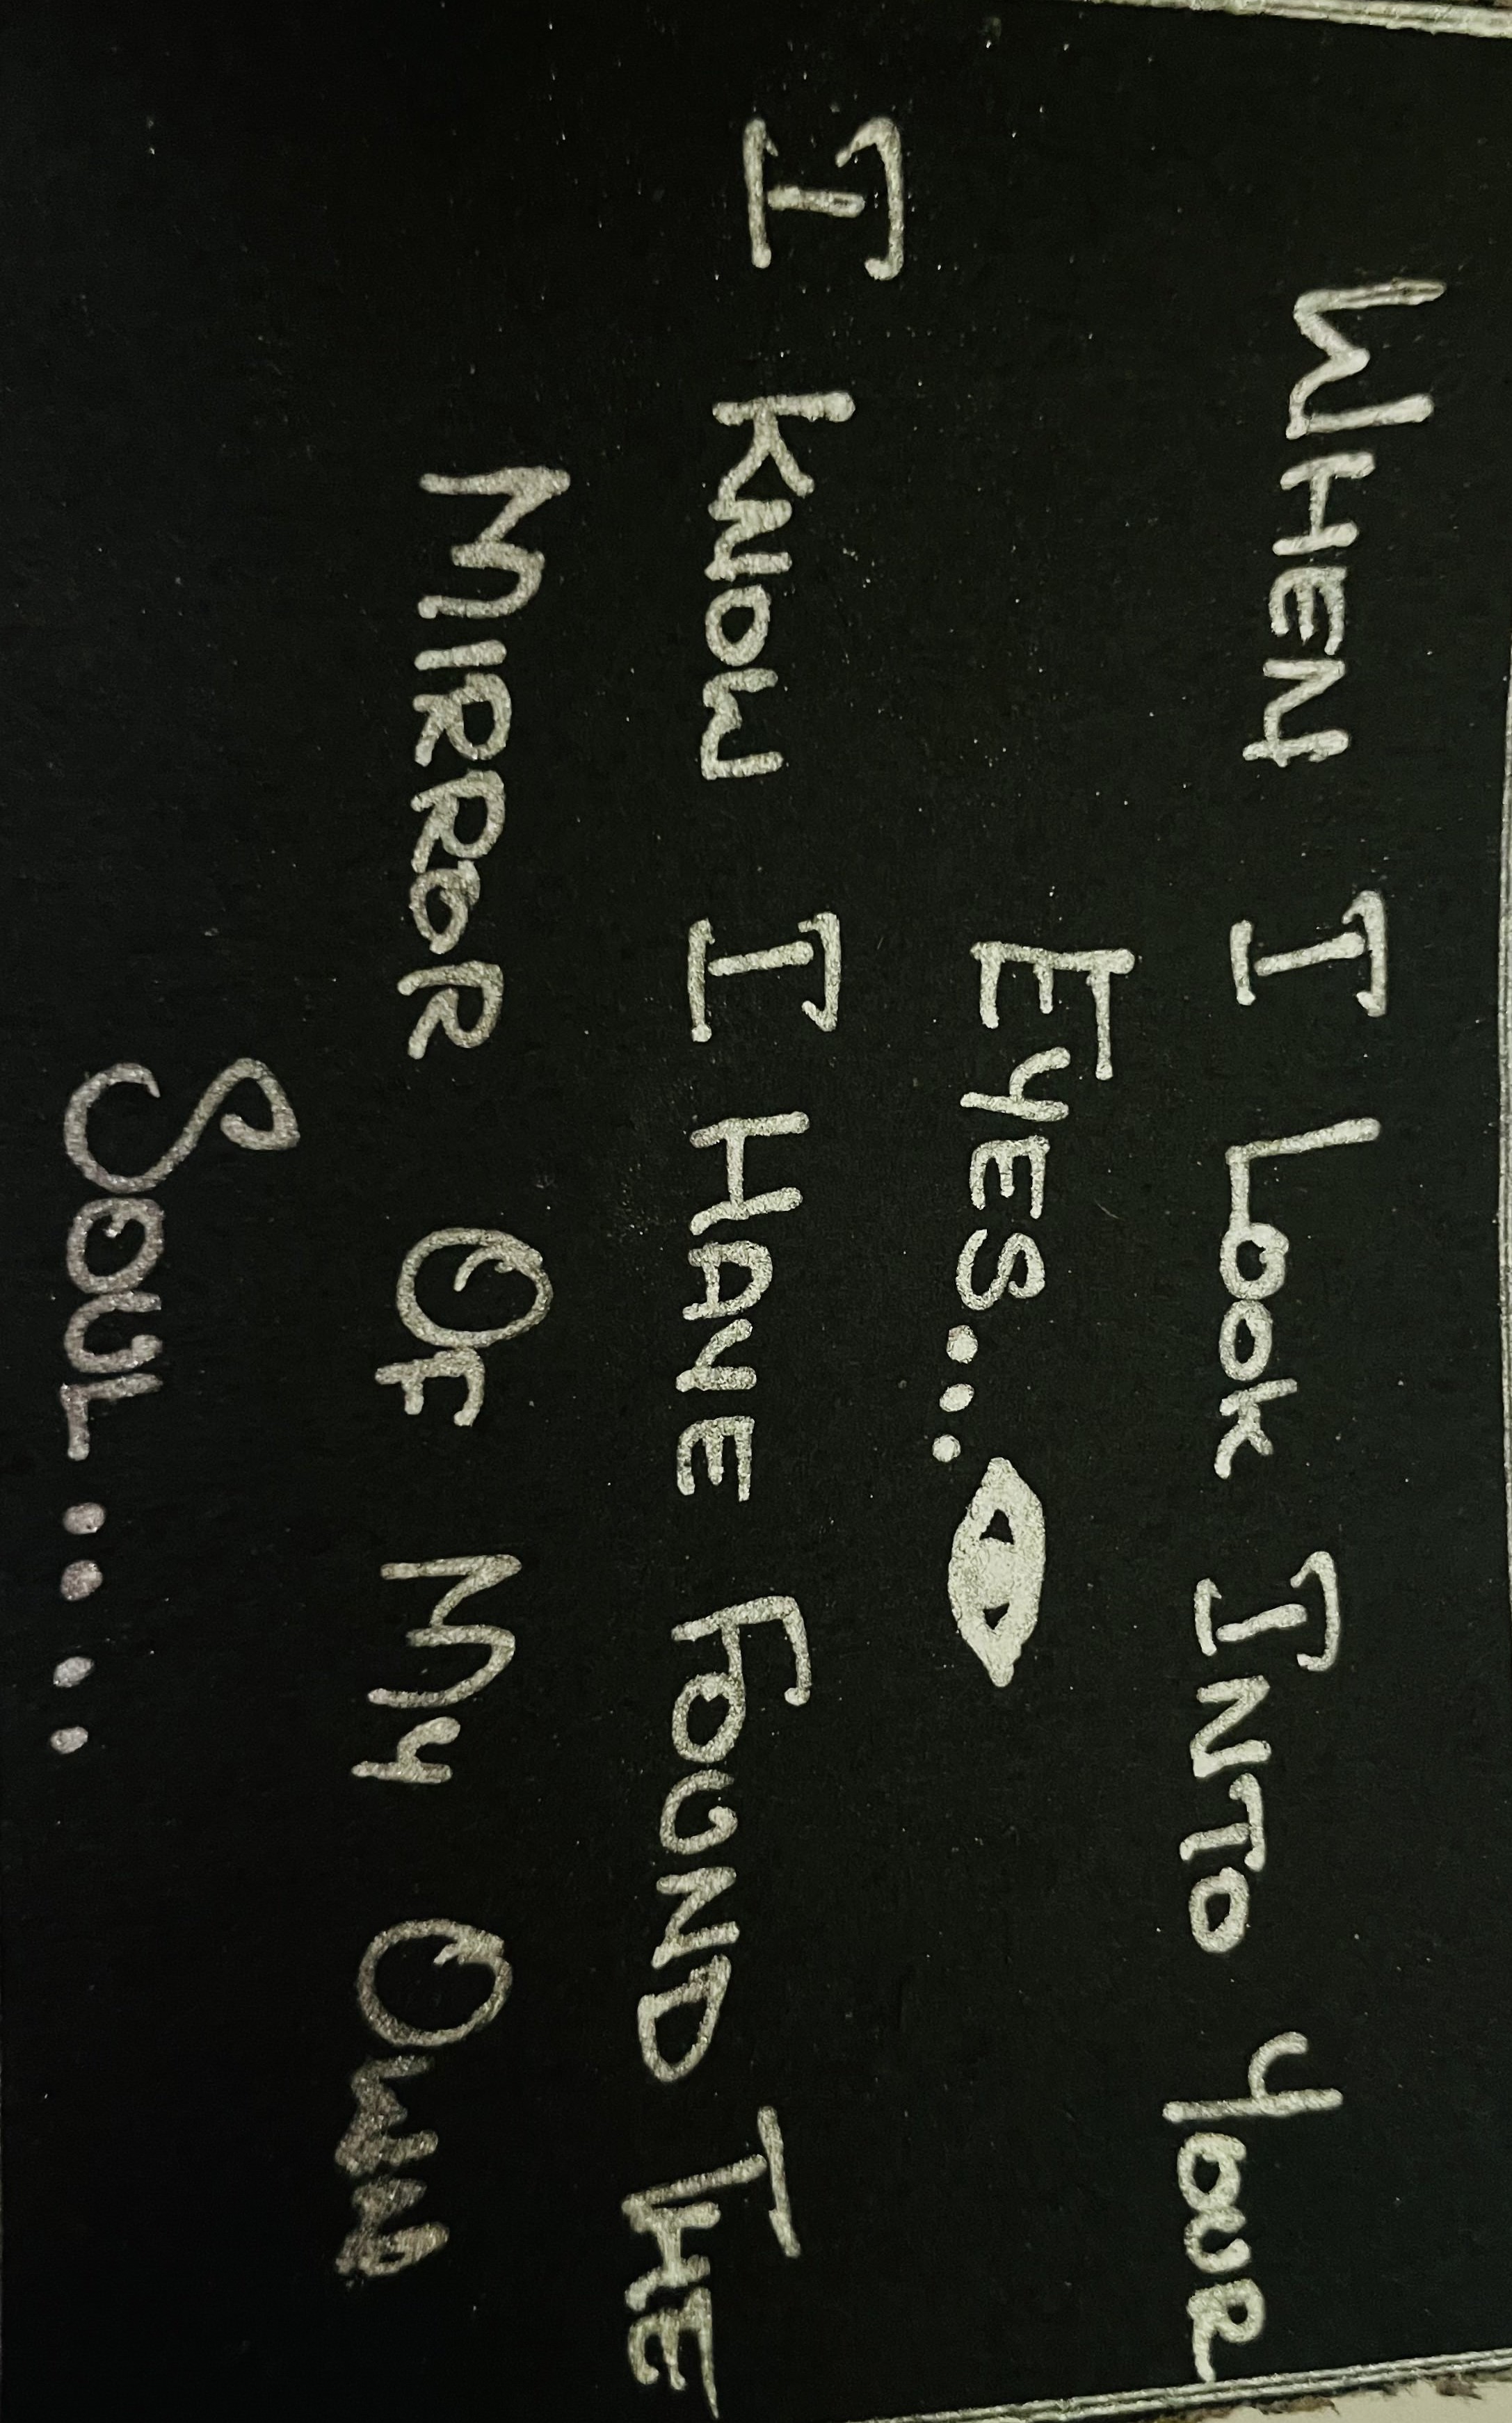 WHEN I LOOK INTO YOUR
EYES...
I KNOW I HANE FOUND THE
MIRROR OF MY OWN
SOUL....